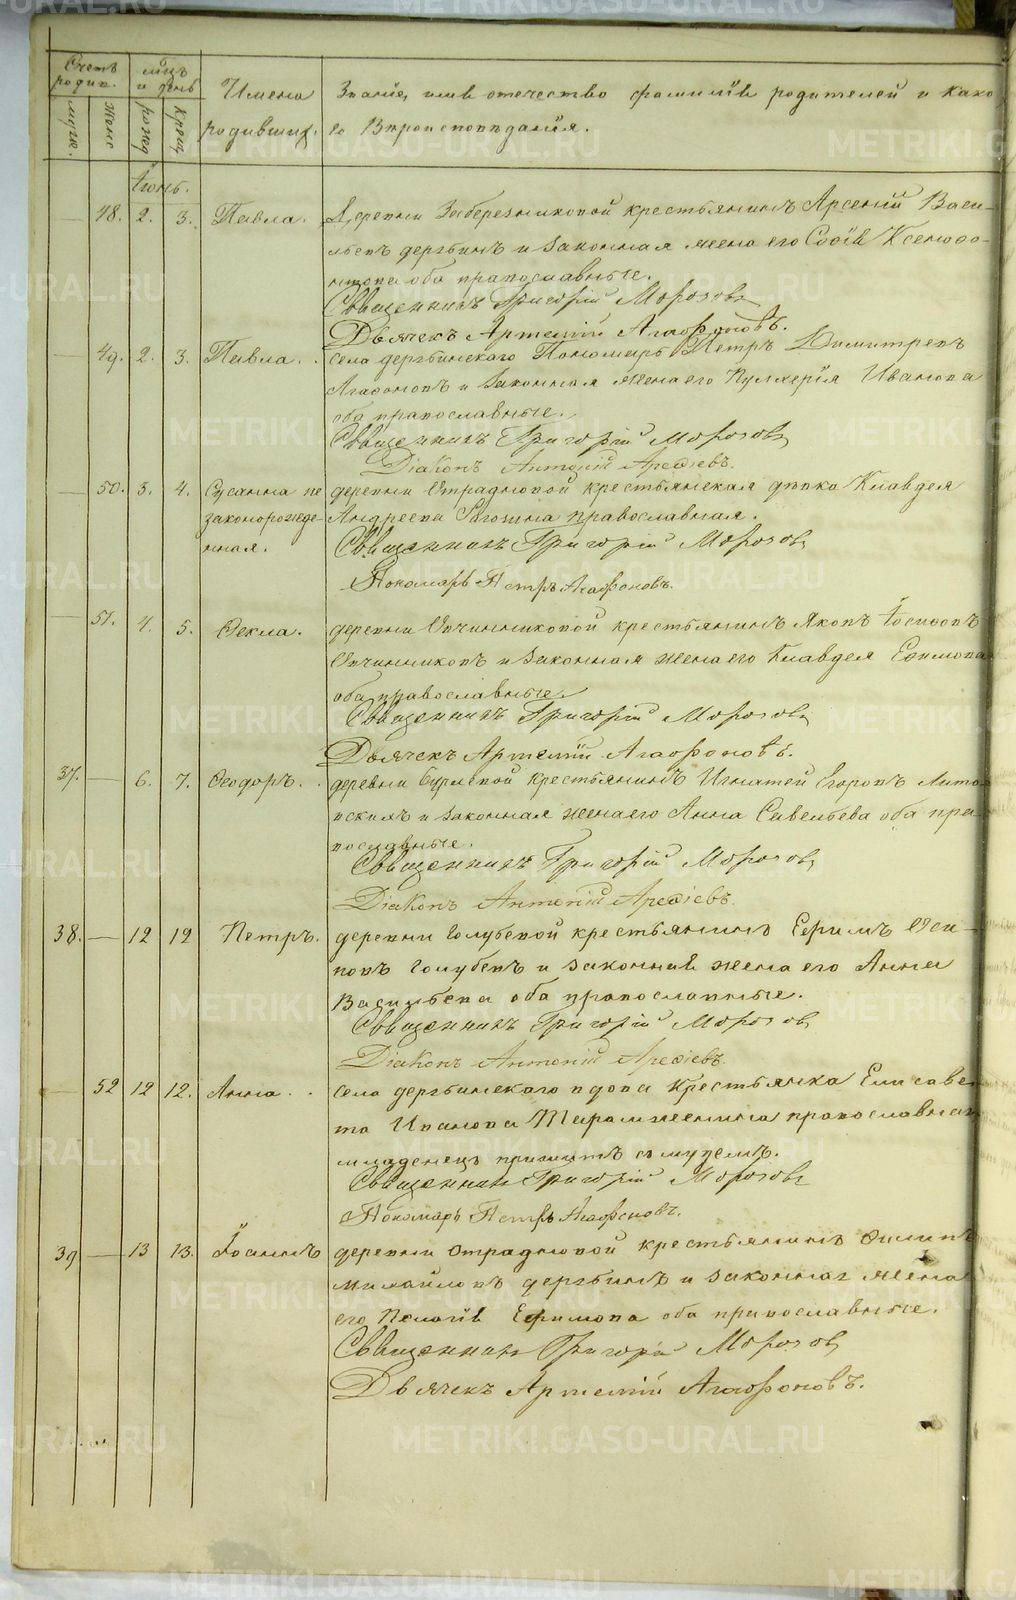 Счетъ родив. мѣцъ и день Имена родивших. Званіе, имя отечество фамилія родителей и како
го Вѣроисповѣданія.
муж. Женс рожд Крещ.
Іюнь.
48. 2. 3. Павла. Деревни Забережниковой крестьянинъ Арсеній Васи-
льевъ дергбинъ и законная жена его Софія Ксенофо-
нтова оба православные.
Священникъ Григорій Морозовъ
Дьячекъ Артемій Агафоновъ.
49. 2. 3. Павла. села дергбинскаго Пономарь Петръ Димитревъ
Агафоновъ и законная жена его Пулхерія Иванова
оба православные.
Священникъ Григорій Морозовъ
Діаконъ Антоній Арефіевъ.
50. 3. 4. Сусанна не деревни Отрадновой крестьянская дѣвка Клавдея
законорожде- Андреева православная.
нная. Священникъ Григорій Морозовъ
Пономарь Петръ Агафоновъ.
51. 4. 5. Фекла. деревни Овчинниковой крестьянинъ Яковъ Іосифовъ
Овчинниковъ и законная жена его Клавдея Ефимова
оба православные.
Священникъ Григорій Морозовъ
Дьячекъ Артемій Агафоновъ.
37. 6. 7. Феодоръ. деревни крестьянинъ Игнатей Егоровъ
и законная жена его Анна Савельева оба пра-
вославные.
Священникъ Григорій Морозовъ
Діаконъ Антоній Арефіевъ.
38. 12 12 Петръ. деревни Голубевой крестьянинъ Ефимъ Оси-
повъ Голубевъ и законная жена его Анна
Васильева оба православные.
Священникъ Григорій Морозовъ
Діаконъ Антоній Арефіевъ.
52 12 12. Анна. села дергбинскаго вдова Крестьянка Елисаве-
та Иванова православная
младенецъ прижитъ съ мужемъ.
Священникъ Григорій Морозовъ
Пономарь Петръ Агафоновъ.
39 13 13. Іоаннъ деревни Отрадновой крестьянинъ Филипъ
Михайловъ дергбинъ и законная жена
его Пелагія Ефимова оба православные.
Священникъ Григорій Морозовъ
Дьячекъ Артемій Агафоновъ.
METRIKI.GASO-URAL.RU